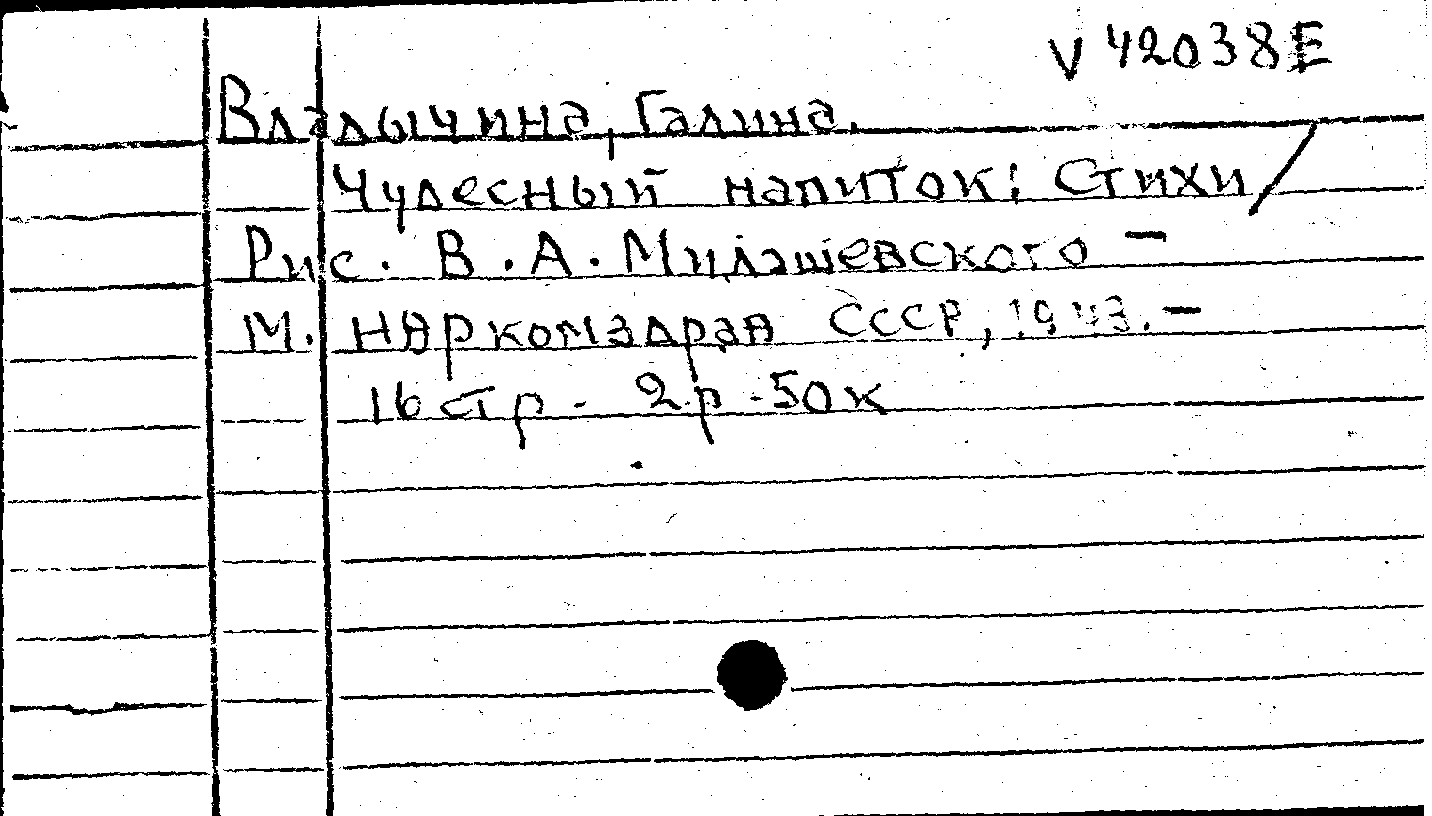 V 42038E
Владычина, Галина.
Чудесный напиток: Стихи /
Рис. В. А. Милашевского –
М. Наркомздрав СССР, 1943. –
16 стр. - 2 р. - 50 к